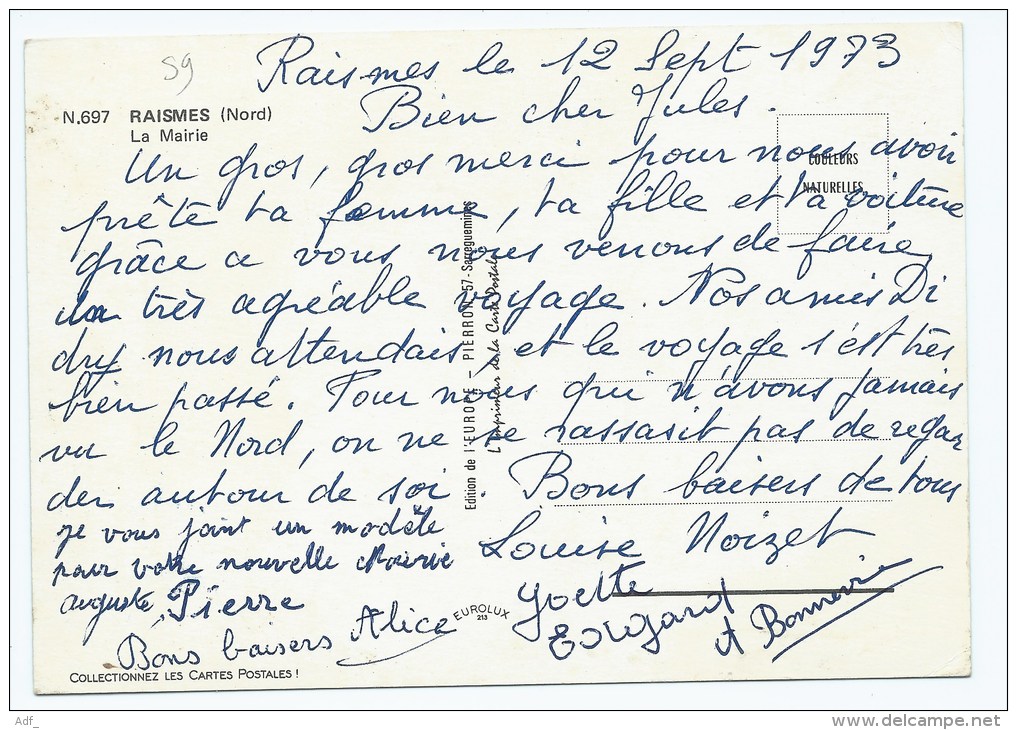 59
Raismes le 12 Sept 1973
N.697 RAISMES (Nord)
La Mairie
Bien cher Jules.
COULEURS
NATURELLES
Un gros, gros merci pour nous avoir
prêté ta femme, ta fille et ta voiture
grâce a vous nous venons de faire
un très agréable voyage. Nos amis Di
dry nous attendais et le voyage s'est très
bien passé. Pour nous qui n'avons jamais
vu le Nord, on ne se rassasit pas de regar
der autour de soi. Bons baisers de tous
Louise Noizet
je vous joint un modèle
pour votre nouvelle Mairie
auguste, Pierre
Yvette
Edgard
et Bonnevie
Bons baisers Alice
Edition de l'EUROPE - PIERRON - 57-Sarreguemines
L'Imprimeur de la Carte Postale
EUROLUX
213
COLLECTIONNEZ LES CARTES POSTALES !
Adf_
www.delcampe.net